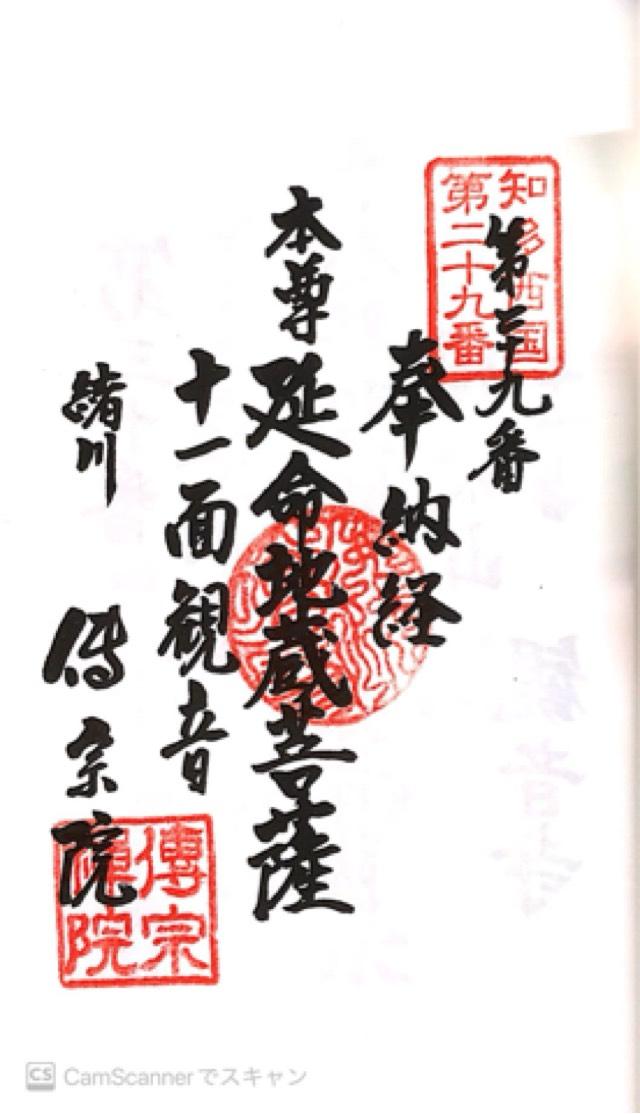 知多西国
第二十九番
第二十九番
奉納経
本尊 延命地蔵菩薩
十一面観音
緒川 傳宗院
傳宗
院
CS CamScannerでスキャン